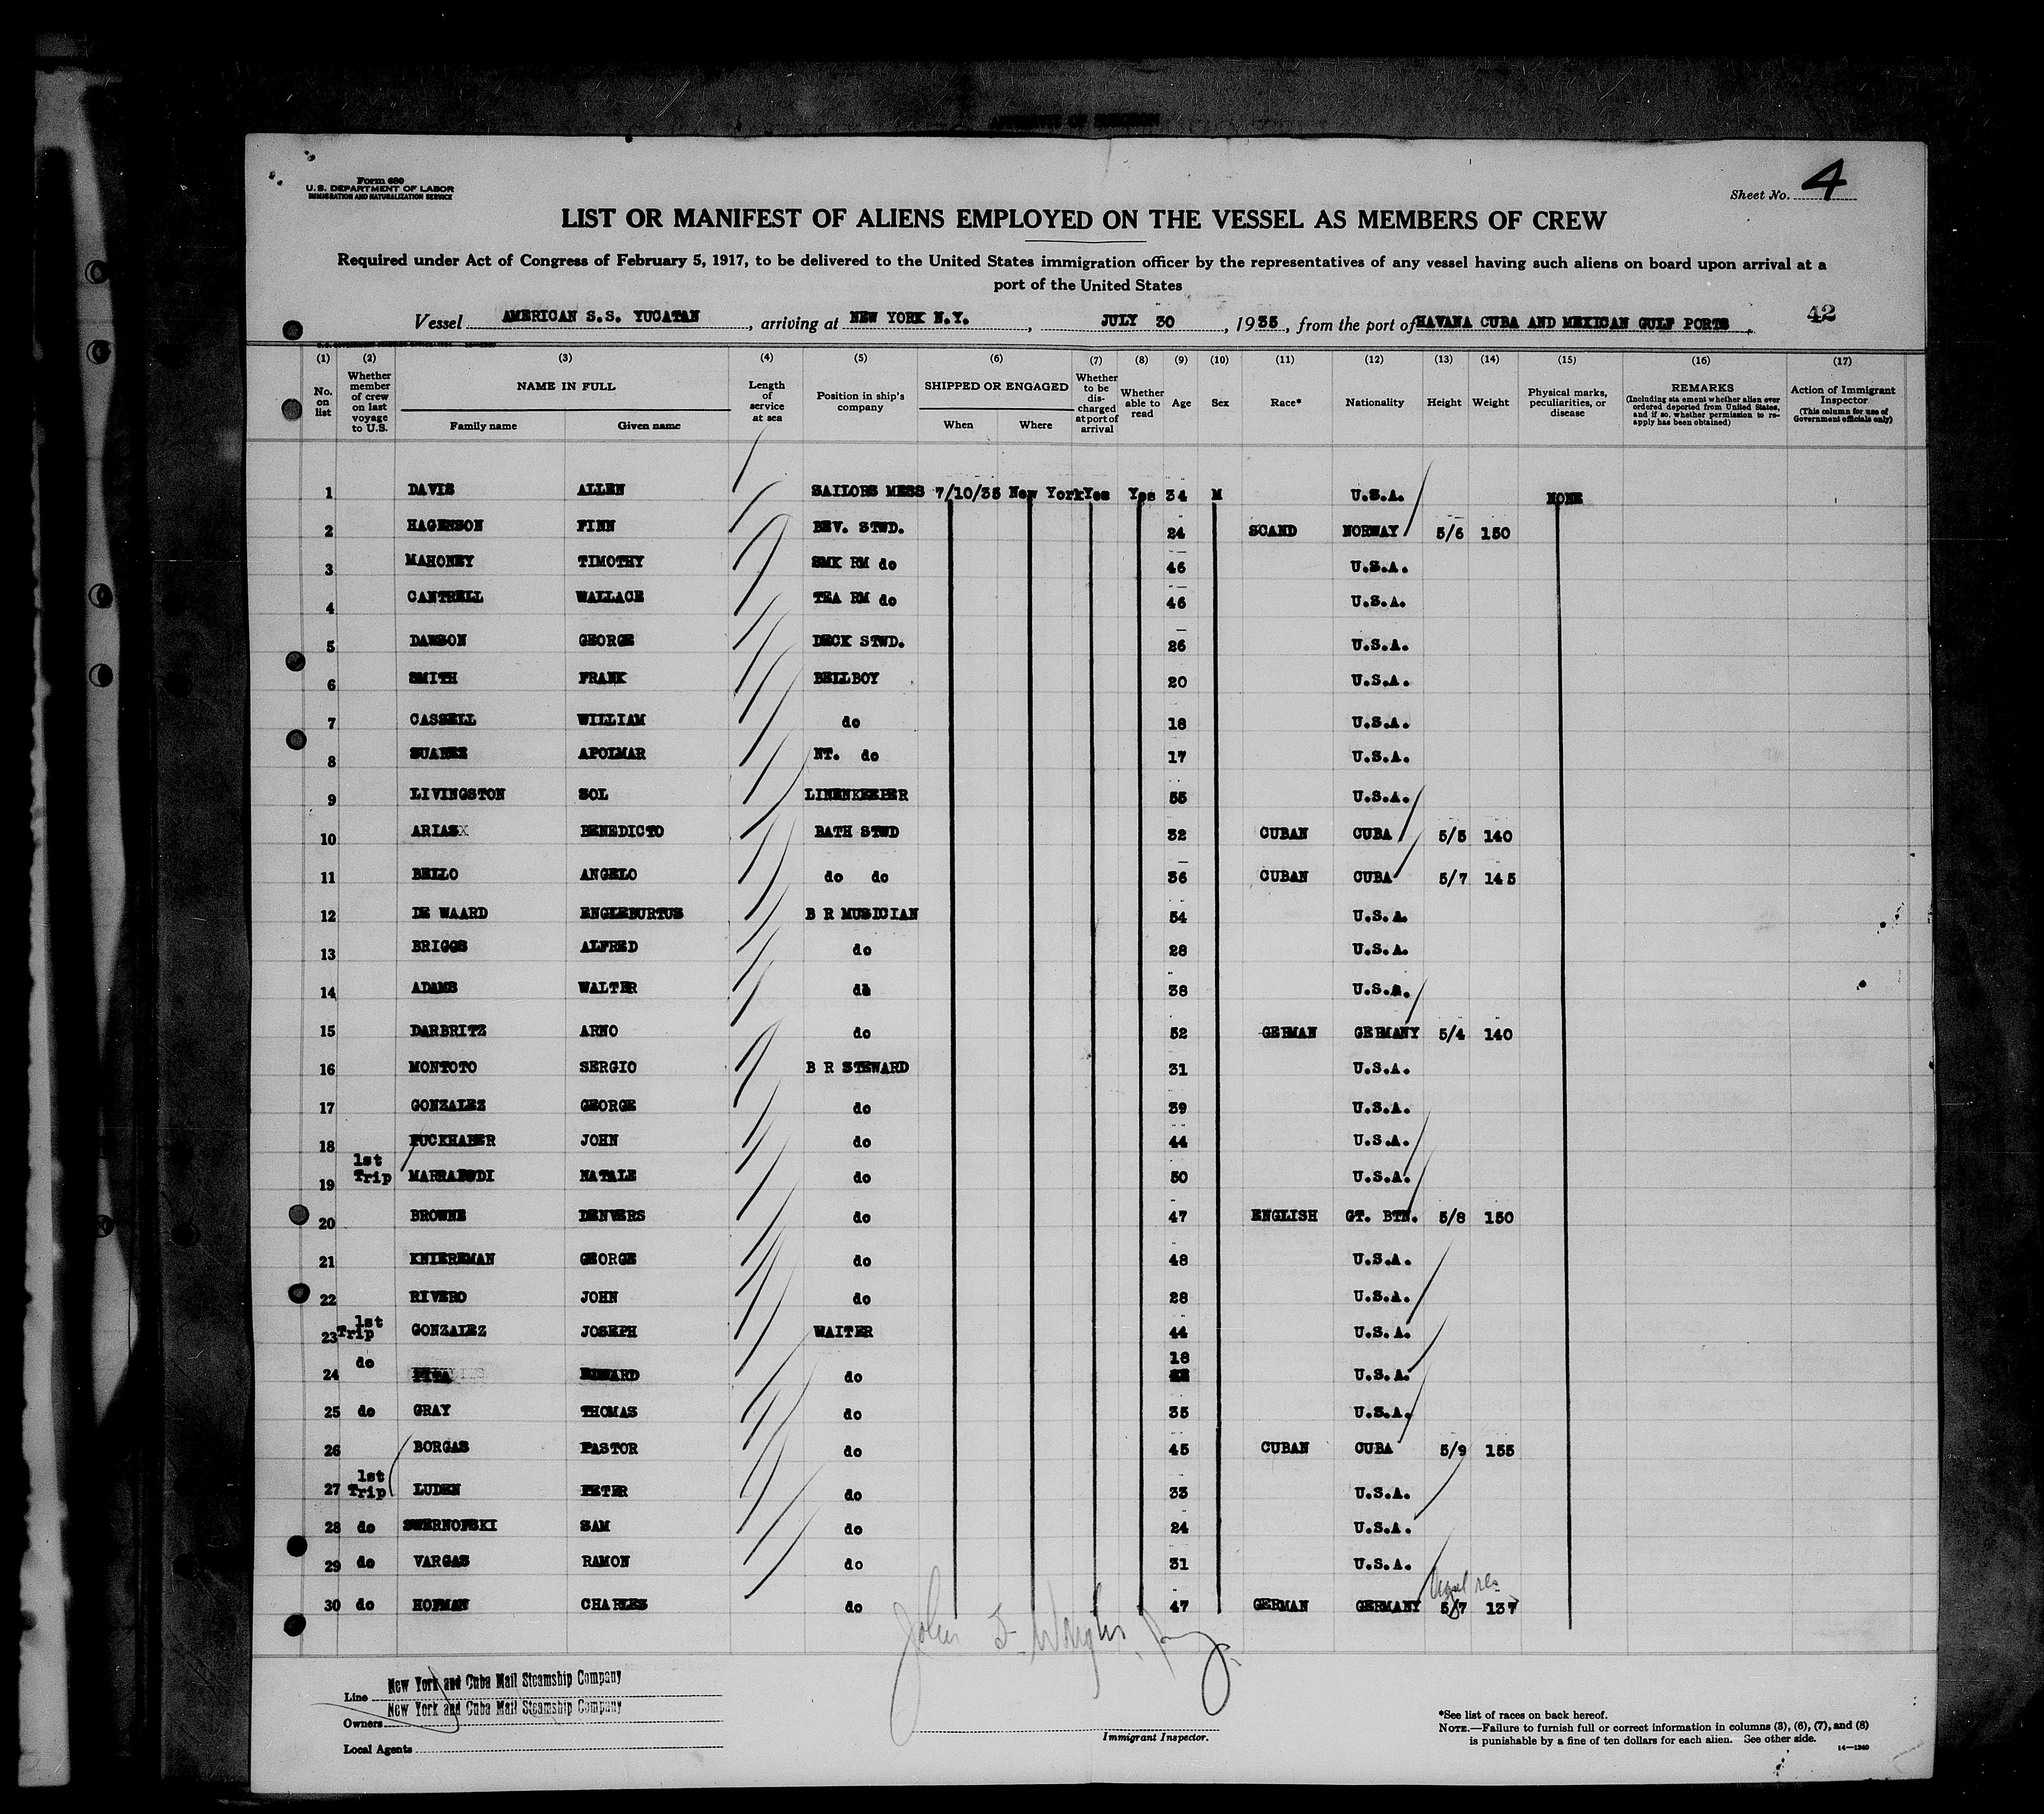 Form 680
U. S. DEPARTMENT OF LABOR
IMMIGRATION AND NATURALIZATION SERVICE
Sheet No. 4
LIST OR MANIFEST OF ALIENS EMPLOYED ON THE VESSEL AS MEMBERS OF CREW
Required under Act of Congress of February 5, 1917, to be delivered to the United States immigration officer by the representatives of any vessel having such aliens on board upon arrival at a
port of the United States
Vessel AMERICAN S.S. YUCATAN, arriving at NEW YORK N.Y., JULY 30, 1935, from the port of HAVANA CUBA AND MEXICAN GULF PORTS
42
(1) (2) (3) (4) (5) (6) (7) (8) (9) (10) (11) (12) (13) (14) (15) (16) (17)
No. on list
Whether member of crew on last voyage to U.S.
NAME IN FULL
Family name Given name
Length of service at sea
Position in ship's company
SHIPPED OR ENGAGED
When Where
Whether to be discharged at port of arrival
Whether able to read
Age
Sex
Race*
Nationality
Height
Weight
Physical marks, peculiarities, or disease
REMARKS
(Including statement whether alien ever ordered deported from United States, and if so, whether permission to reapply has been obtained)
Action of Immigrant Inspector
(This column for use of Government officials only)
1 DAVIS ALLEN SAILORS MESS 7/10/35 New York Yes Yes 34 M U.S.A. NONE
2 HAGENSON FINN BEV. STWD. 24 SCAND NORWAY 5/6 150
3 MAHONEY TIMOTHY SMK RM do 46 U.S.A.
4 CANTRELL WALLACE TEA RM do 46 U.S.A.
5 DAWSON GEORGE DECK STWD. 26 U.S.A.
6 SMITH FRANK BELLBOY 20 U.S.A.
7 CASSELL WILLIAM do 18 U.S.A.
8 SUAREZ APOLMAR NT. do 17 U.S.A.
9 LIVINGSTON SOL LINENKEEPER 55 U.S.A.
10 ARIAS BENEDICTO BATH STWD 32 CUBAN CUBA 5/5 140
11 BELLO ANGELO do do 36 CUBAN CUBA 5/7 145
12 DE WAARD ENGLEBURTUS B R MUSICIAN 54 U.S.A.
13 BRIGGS ALFRED do 28 U.S.A.
14 ADAMS WALTER do 38 U.S.A.
15 DARBRITZ ARNO do 52 GERMAN GERMANY 5/4 140
16 MONTOTO SERGIO B R STEWARD 31 U.S.A.
17 GONZALEZ GEORGE do 39 U.S.A.
18 PUCKHABER JOHN do 44 U.S.A.
19 1st Trip NATALE do 50 U.S.A.
20 BROWNE DENVERS do 47 ENGLISH GT. BTN. 5/8 150
21 KNIEREMAN GEORGE do 48 U.S.A.
22 RIVERO JOHN do 28 U.S.A.
23 1st Trip GONZALEZ JOSEPH WAITER 44 U.S.A.
24 do PITA EDWARD do 18 U.S.A.
25 do GRAY THOMAS do 35 U.S.A.
26 BORGAS PASTOR do 45 CUBAN CUBA 5/9 155
27 1st Trip LUDEN PETER do 33 U.S.A.
28 do SWERNOFSKI SAM do 24 U.S.A.
29 do VARGAS RAMON do 31 U.S.A.
30 do HOFMAN CHARLES do 47 GERMAN GERMANY 5/7 137
Line New York and Cuba Mail Steamship Company
Owners New York and Cuba Mail Steamship Company
Local Agents
Immigrant Inspector.
*See list of races on back hereof.
NOTE.—Failure to furnish full or correct information in columns (3), (6), (7), and (8)
is punishable by a fine of ten dollars for each alien. See other side.
14—1240